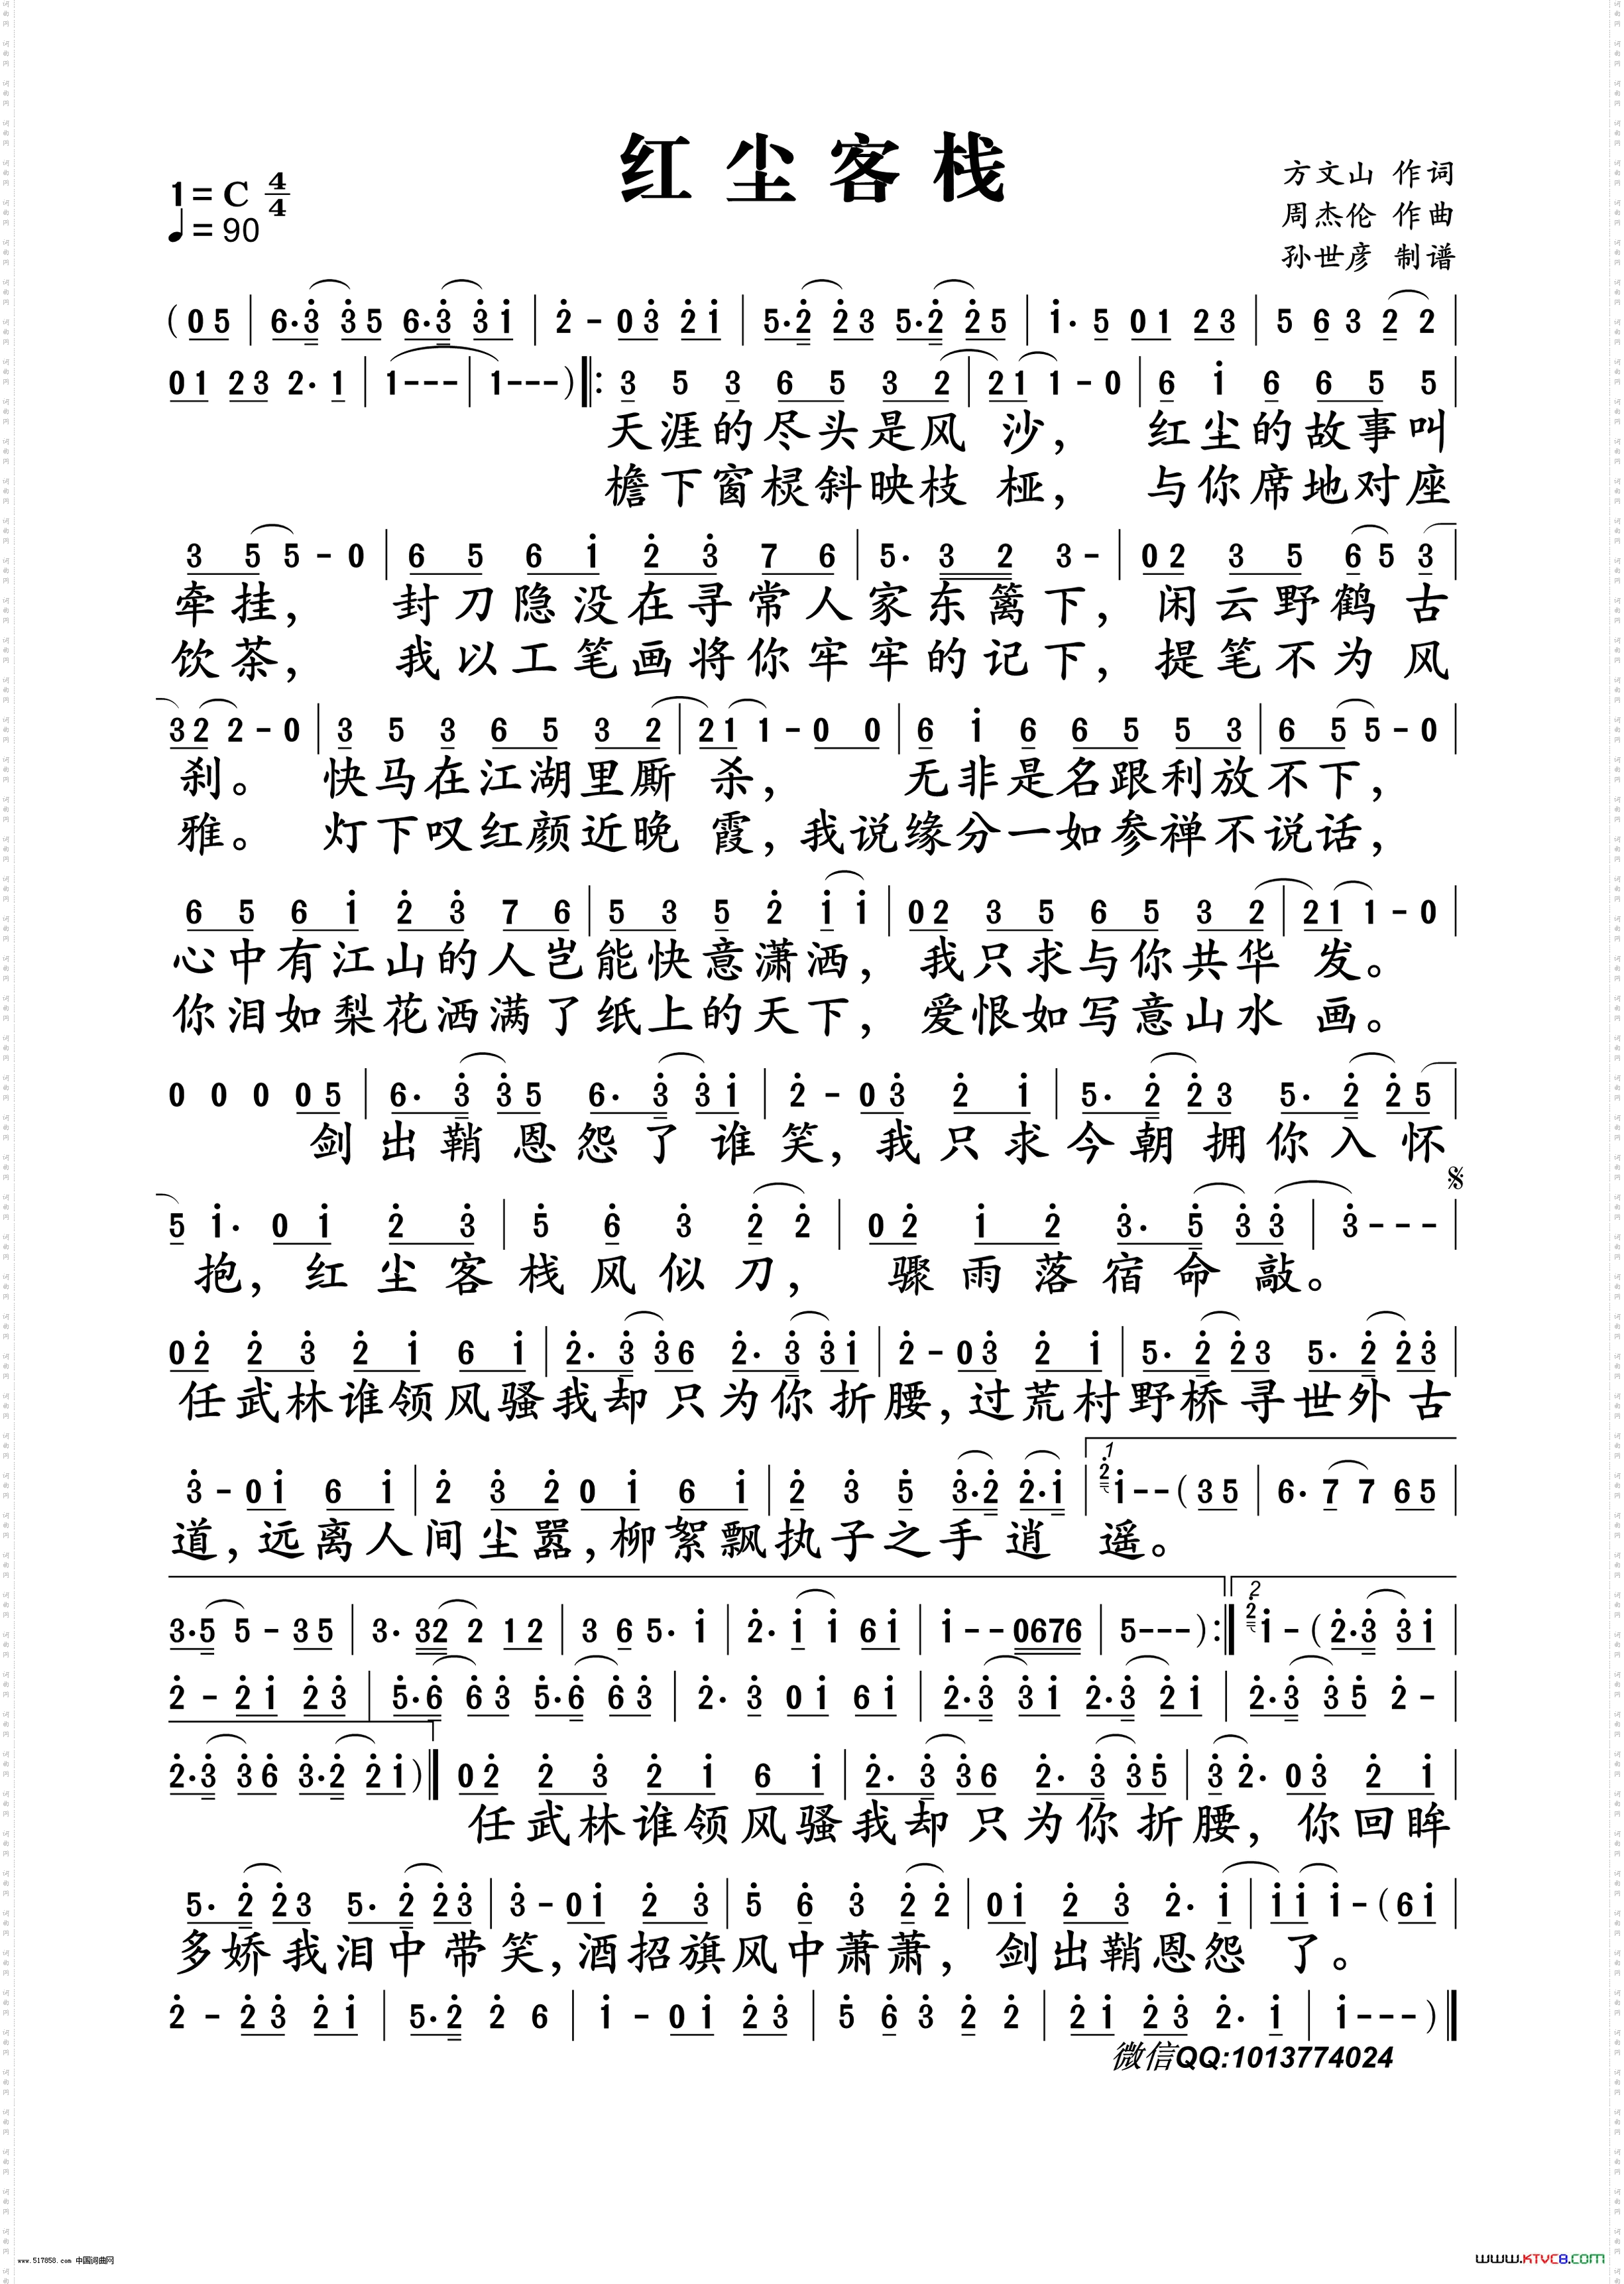 红尘客栈
1=C 4/4
♩=90
方文山 作词
周杰伦 作曲
孙世彦 制谱
(05 | 6·3 35 6·3 31 | 2 - 03 21 | 5·2 23 5·2 25 | 1· 5 01 23 | 5 6 3 2 2 |
01 23 2· 1 | 1--- | 1---) ‖: 3 5 3 6 5 3 2 | 21 1 - 0 | 6 1 6 6 5 5 |
天涯的尽头是风 沙， 红尘的故事叫
檐下窗棂斜映枝 桠， 与你席地对座
3 5 5 - 0 | 6 5 6 1 2 3 7 6 | 5· 3 2 3 - | 02 3 5 6 5 3 |
牵挂， 封刀隐没在寻常人家东篱下，闲云野鹤古
饮茶， 我以工笔画将你牢牢的记下，提笔不为风
32 2 - 0 | 3 5 3 6 5 3 2 | 21 1 - 0 0 | 6 1 6 6 5 5 3 | 6 5 5 - 0 |
刹。 快马在江湖里厮 杀， 无非是名跟利放不下，
雅。 灯下叹红颜近晚 霞，我说缘分一如参禅不说话，
6 5 6 1 2 3 7 6 | 5 3 5 2 1 1 | 02 3 5 6 5 3 2 | 21 1 - 0 |
心中有江山的人岂能快意潇洒， 我只求与你共华 发。
你泪如梨花洒满了纸上的天下， 爱恨如写意山水 画。
0 0 0 05 | 6· 3 35 6· 3 31 | 2 - 03 2 1 | 5· 2 23 5· 2 25 |
剑出鞘恩怨了谁笑，我只求今朝拥你入怀
5 1· 0 1 2 3 | 5 6 3 2 2 | 02 1 2 3· 5 33 | 3--- |
抱，红尘客栈风似刀， 骤雨落宿命敲。
02 2 3 2 1 6 1 | 2· 3 36 2· 3 31 | 2 - 03 2 1 | 5· 2 23 5· 2 23 |
任武林谁领风骚我却只为你折腰，过荒村野桥寻世外古
3 - 01 6 1 | 2 3 2 0 1 6 1 | 2 3 5 3·2 2·1 | 1. 2 1--(35 | 6· 7 7 65 |
道，远离人间尘嚣，柳絮飘执子之手逍 遥。
3·5 5 - 35 | 3· 32 2 12 | 3 6 5· 1 | 2· 1 1 61 | 1 - - 0676 | 5---) :‖ 2 2 1 - (2·3 31 |
2 - 21 23 | 5·6 63 5·6 63 | 2· 3 01 61 | 2·3 31 2·3 21 | 2·3 35 2 -
2·3 36 3·2 21) ‖ 02 2 3 2 1 6 1 | 2· 3 36 2· 3 35 | 3 2· 03 2 1 |
任武林谁领风骚我却只为你折腰，你回眸
5· 2 23 5· 2 23 | 3 - 01 2 3 | 5 6 3 2 2 | 01 2 3 2· 1 | 11 1 - (61 |
多娇我泪中带笑，酒招旗风中萧萧， 剑出鞘恩怨 了。
2 - 23 21 | 5·2 2 6 | 1 - 01 23 | 5 6 3 2 2 | 21 23 2· 1 | 1---) ‖
微信QQ:1013774024
www.517858.com 中国词曲网
www.KTVC8.com